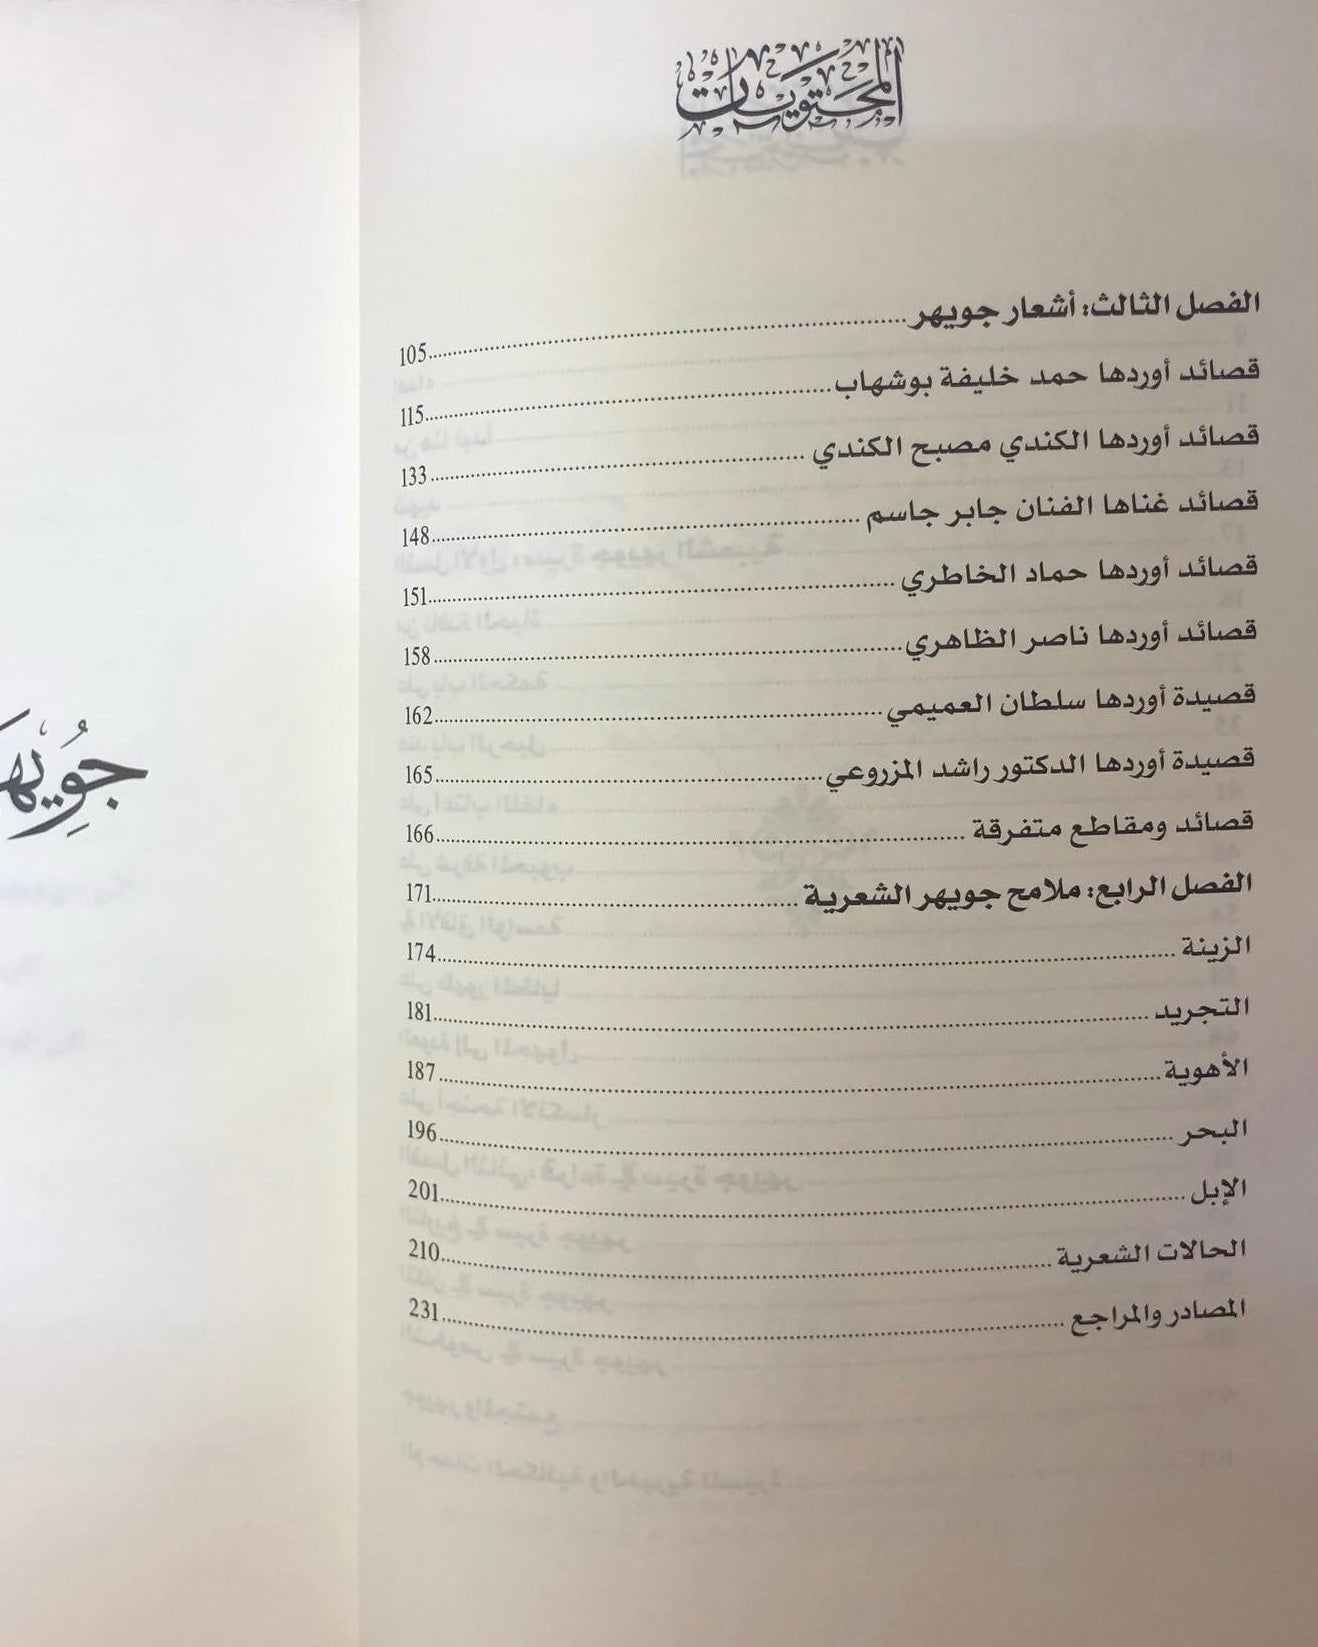 المحتويات
الفصل الثالث: أشعار جويهر ..... 105
قصائد أوردها حمد خليفة بوشهاب ..... 115
قصائد أوردها الكندي مصبح الكندي ..... 133
قصائد غناها الفنان جابر جاسم ..... 148
قصائد أوردها حماد الخاطري ..... 151
قصائد أوردها ناصر الظاهري ..... 158
قصيدة أوردها سلطان العميمي ..... 162
قصيدة أوردها الدكتور راشد المزروعي ..... 165
قصائد ومقاطع متفرقة ..... 166
الفصل الرابع: ملامح جويهر الشعرية ..... 171
الزينة ..... 174
التجريد ..... 181
الأهوية ..... 187
البحر ..... 196
الإبل ..... 201
الحالات الشعرية ..... 210
المصادر والمراجع ..... 231